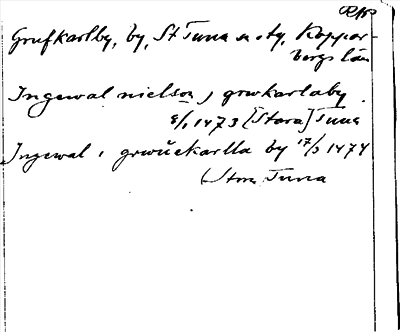 Grufkarlby, by, St Tuna sn o ty, Koppar-
bergs län
Ingewal nielson j grwkarlaby
8/1 1473 [Stora] Tuna
Ingewal i grwuekarlla by 17/3 1474
Stora Tuna